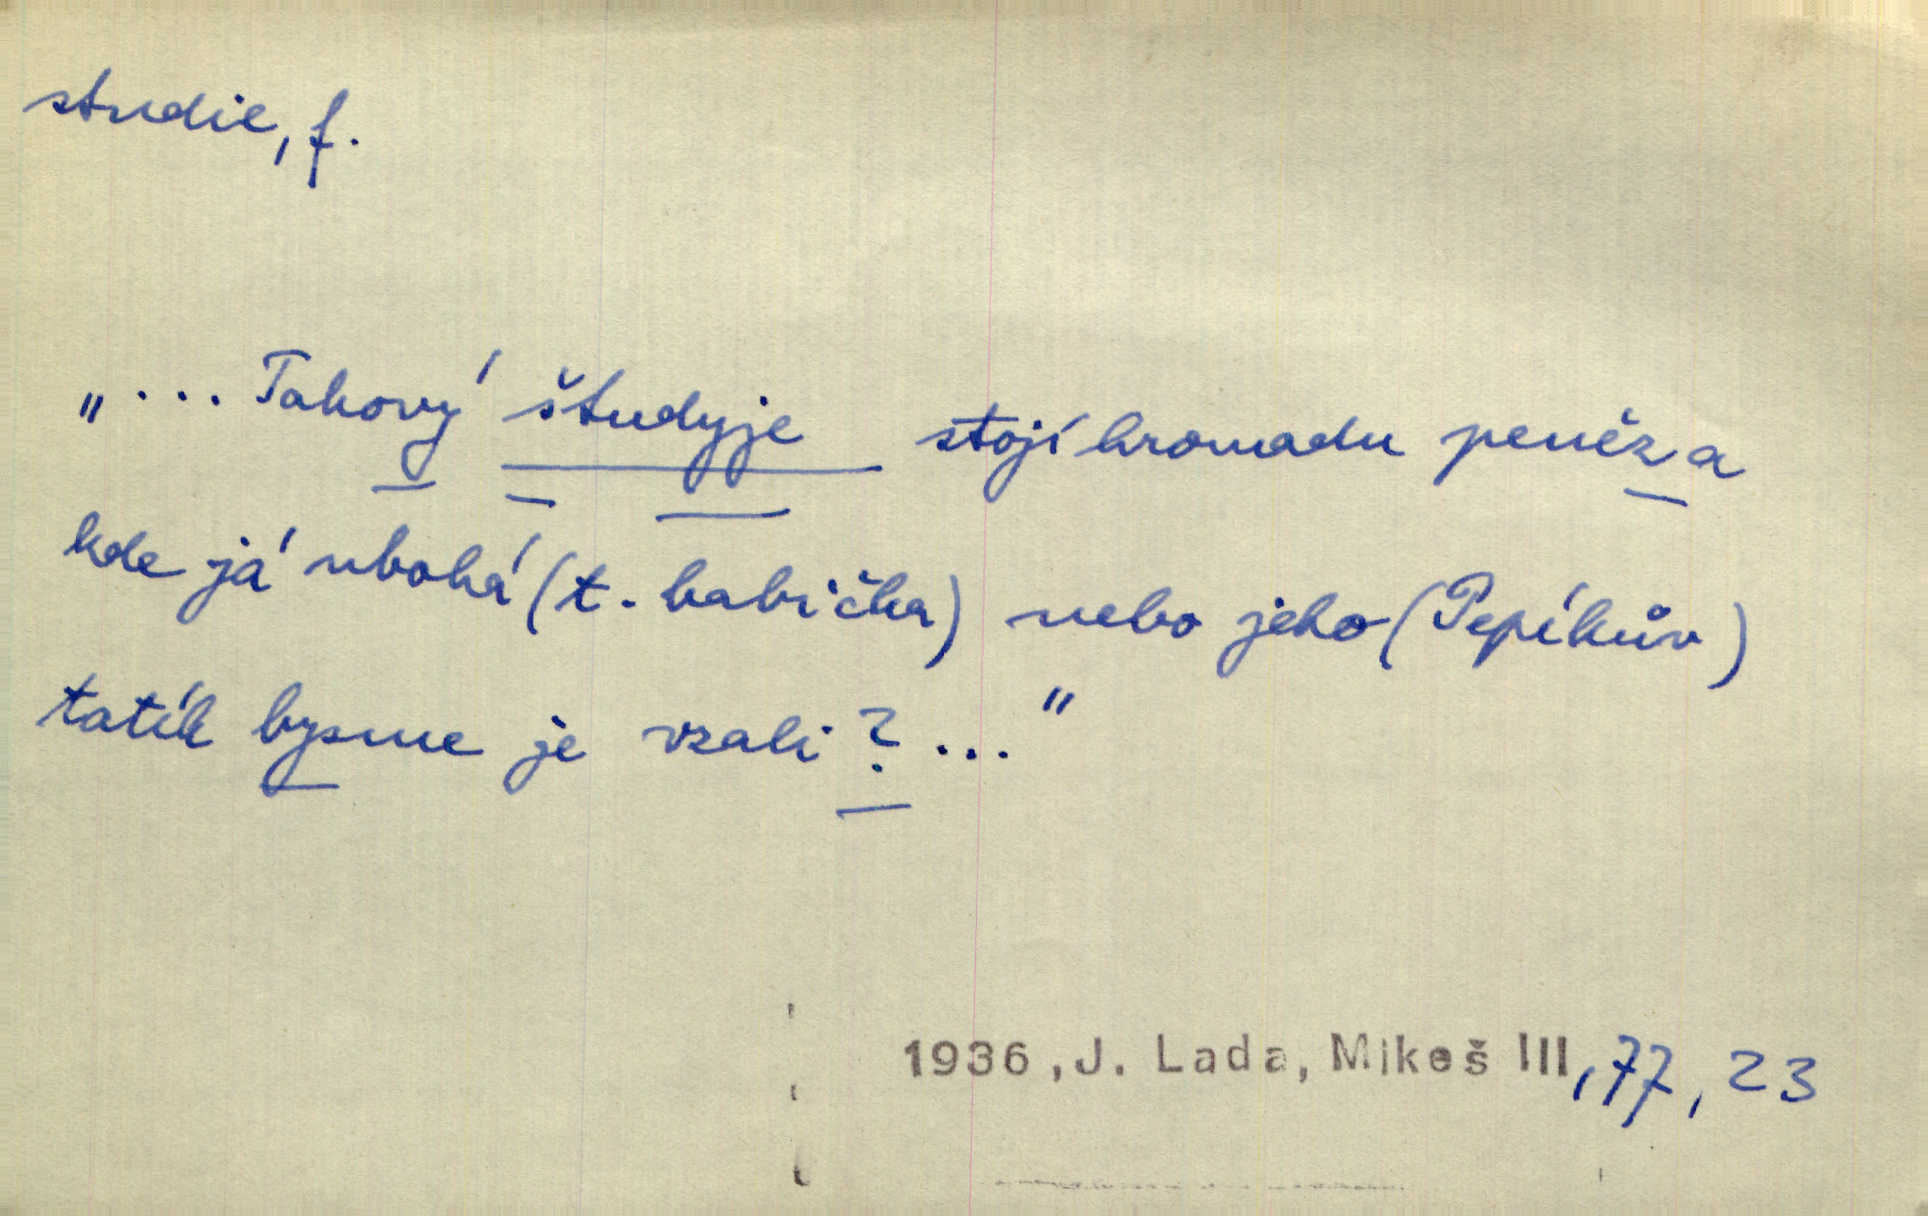 studie, f.
„... Takový študyje stojí hromadu peněz a
kde já ubohá (t. babička) nebo jeho (Pepíkův)
tatík bysme je vzali? ..."
1936, J. Lada, Mikeš III, 77, 23